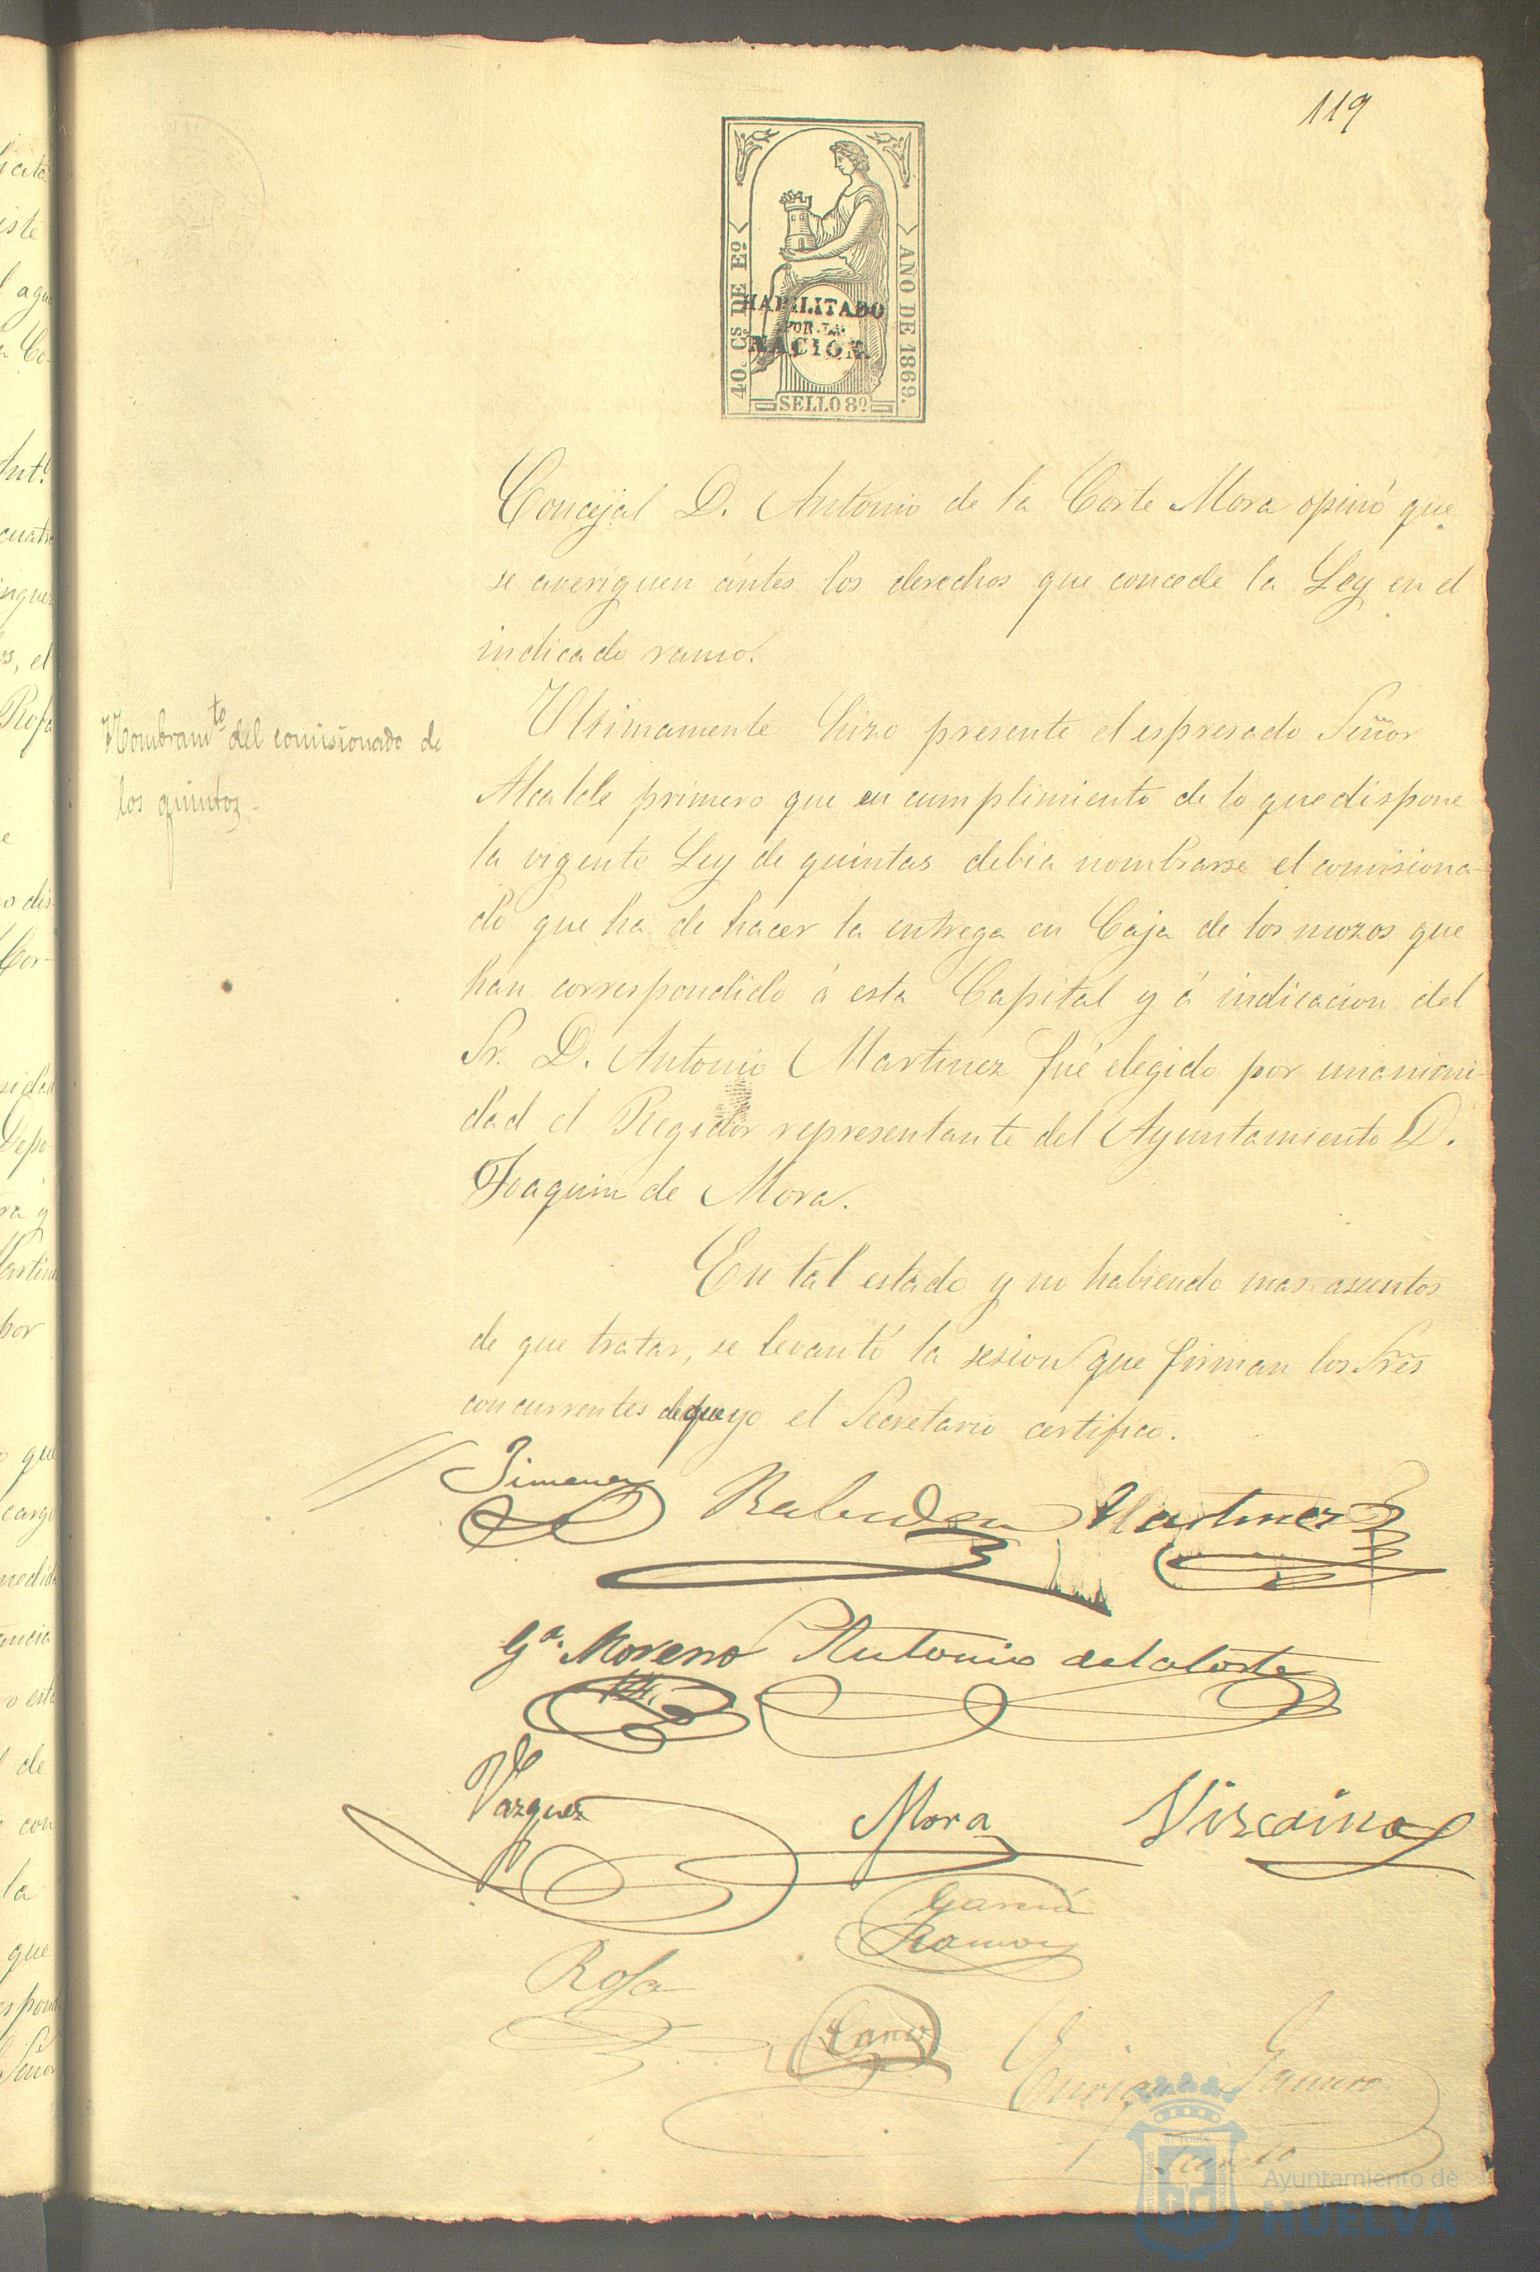 119
40. Cs DE Eº
AÑO DE 1869.
HABILITADO
POR LA
NACION.
SELLO 8º
Concejal D. Antonio de la Corte Mora opinó que
se averiguen ántes los derechos que concede la Ley en el
indicado ramo.
Nombramto del comisionado de
los quintos
Ultimamente hizo presente el espresado Señor
Alcalde primero que en cumplimiento de lo que dispone
la vigente Ley de quintas debia nombrarse el comisiona-
do que ha de hacer la entrega en Caja de los mozos que
han correspondido á esta Capital y á indicacion del
Sr. D. Antonio Martinez fué elegido por unanimi-
dad el Regidor representante del Ayuntamiento D.
Joaquin de Mora.
En tal estado y no habiendo mas asuntos
de que tratar, se levantó la sesion que firman los Sres
concurrentes de que yo el Secretario certifico.
Jimenez Martinez
Ga. Moreno Antonio de la Corte
Vazquez Mora Vizcaino
Garcia
Ramos
Rosa
Cano
Enrique
Ayuntamiento de
HUELVA